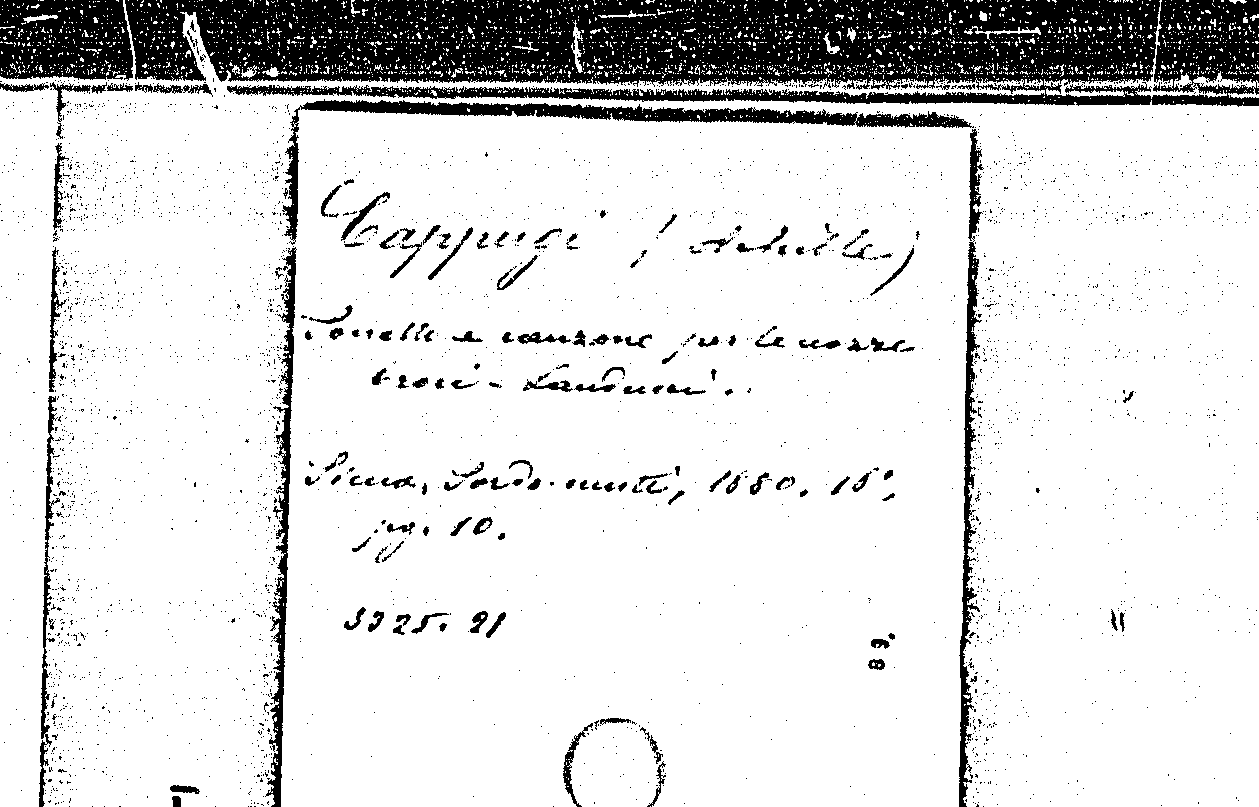 Cappugi (Achille)
Sonetti e canzone per le nozze
Landucci..
Siena, Sordo-muti, 1880. 16°,
pg. 10.
3325. 21
89.